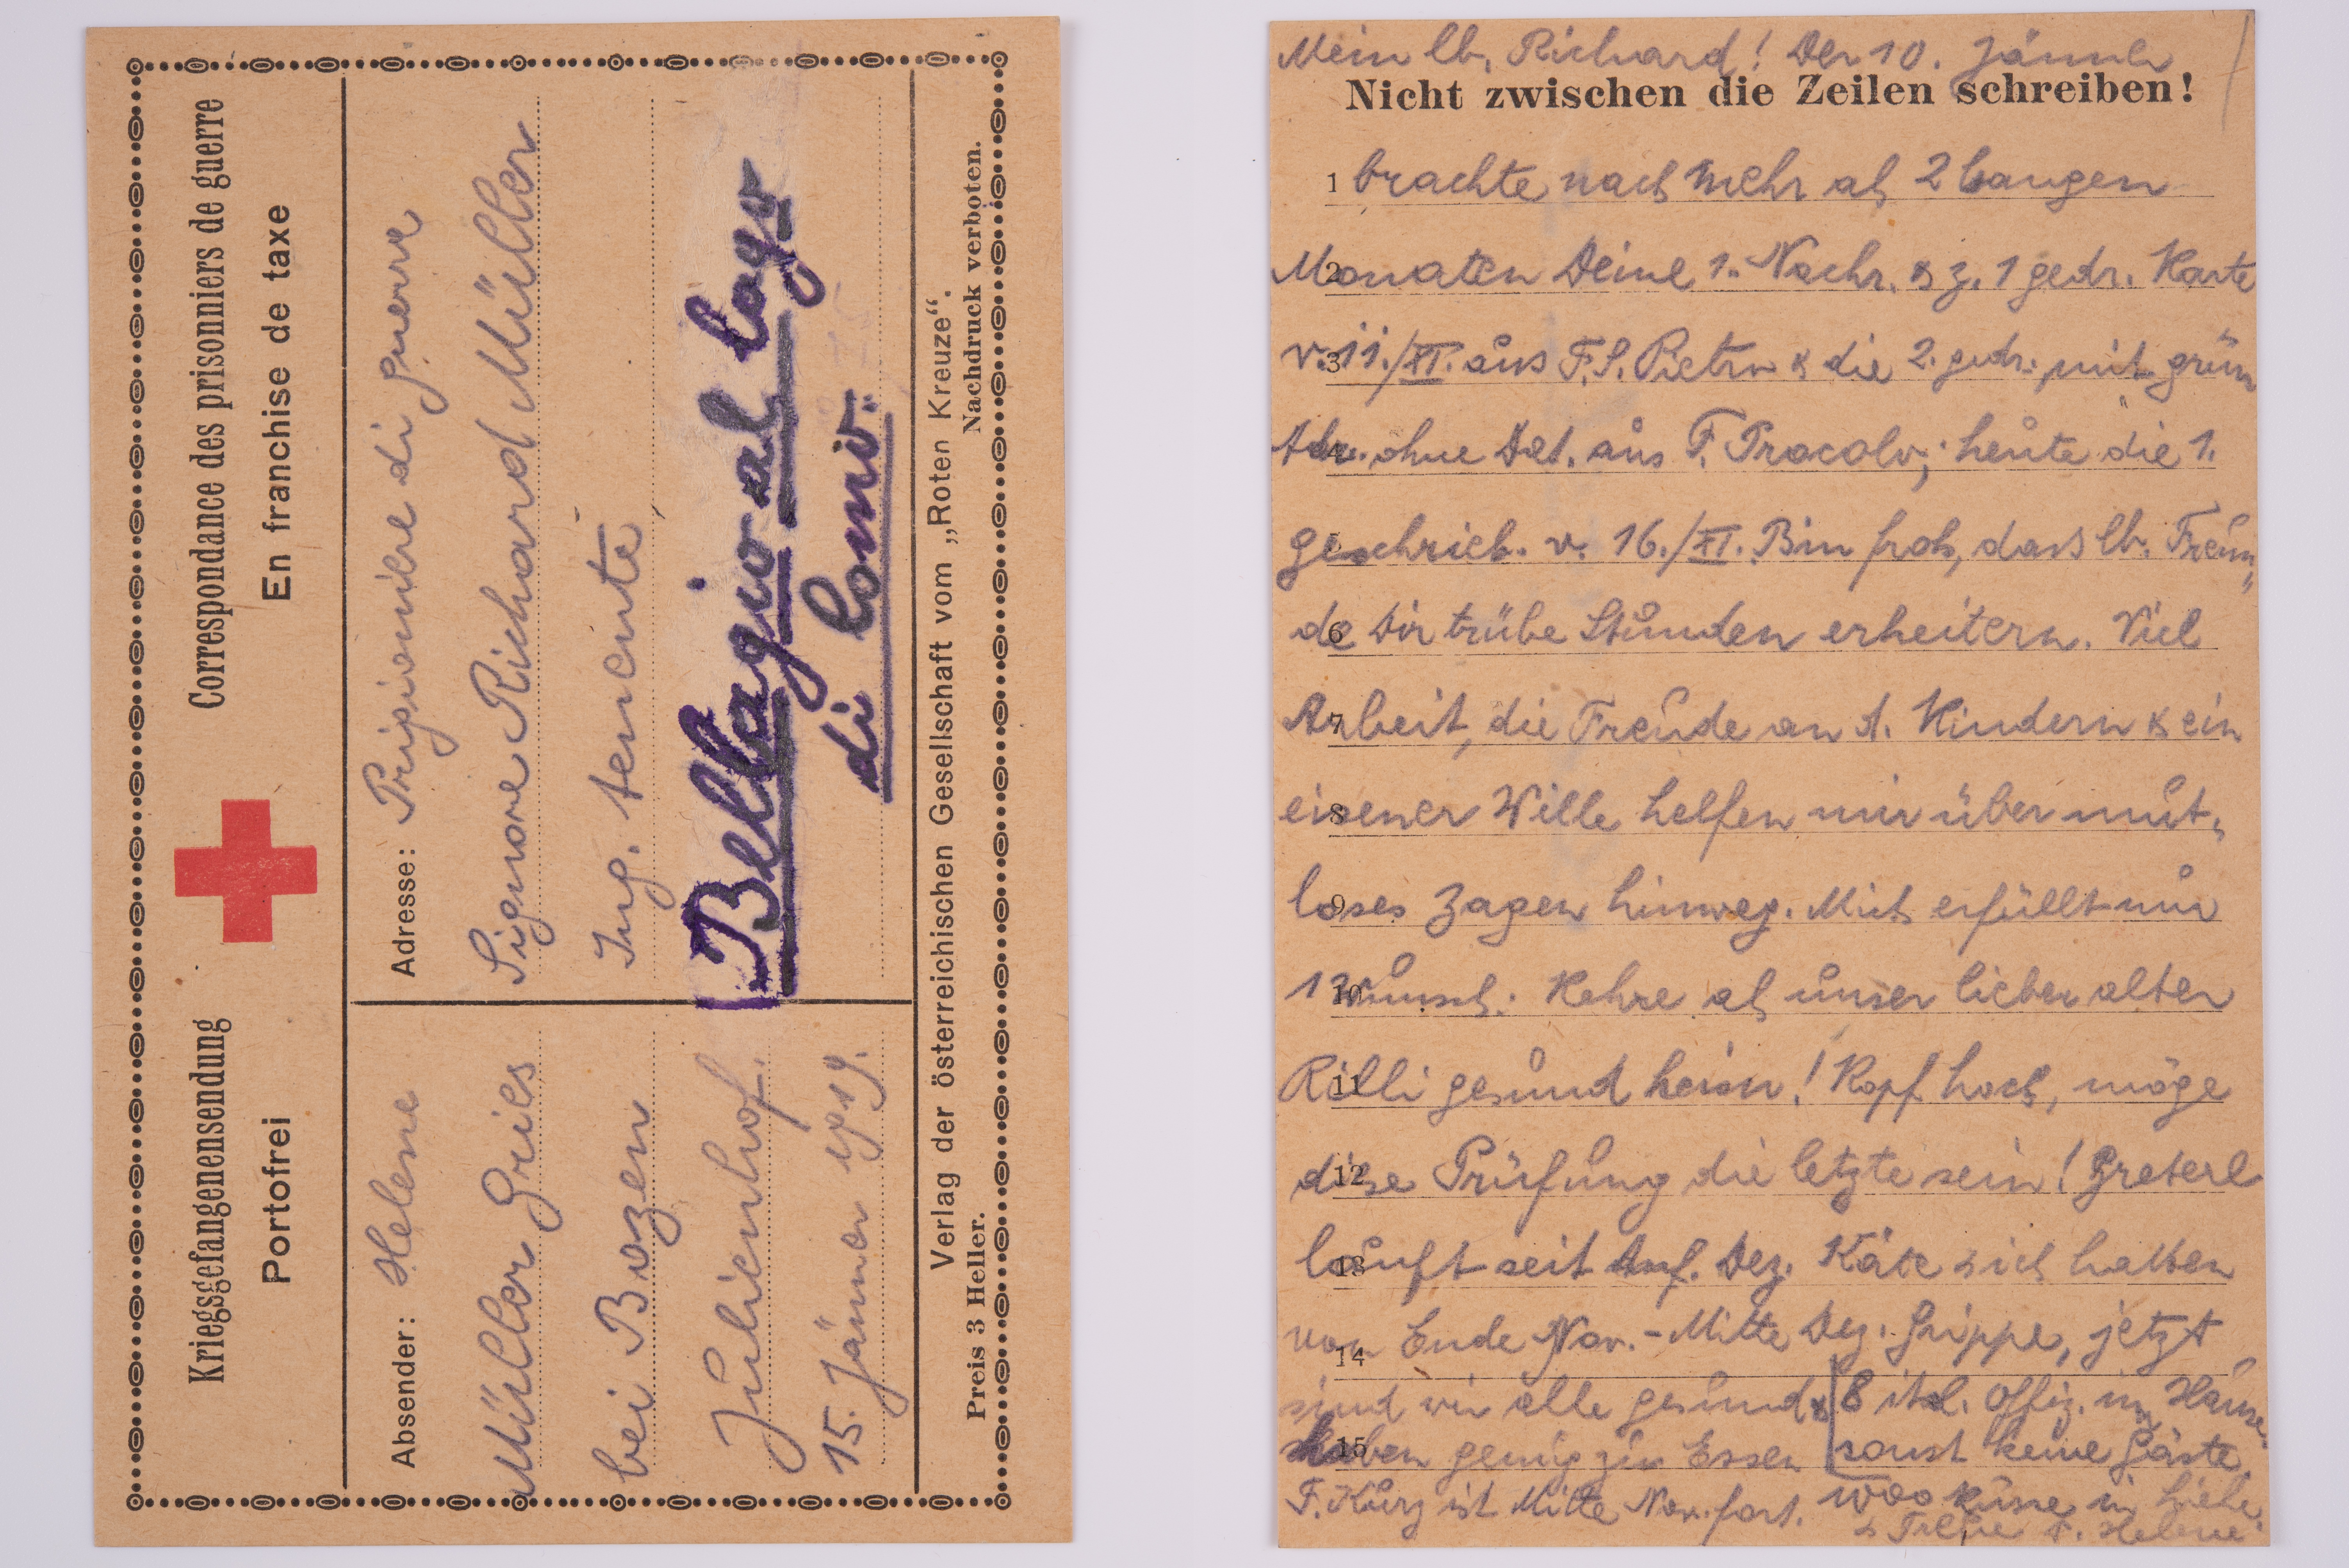 Kriegsgefangenensendung
Portofrei
Correspondance des prisonniers de guerre
En franchise de taxe
Absender: Helene
Müller Gries
bei Bozen
Julienhof.
15. Jänner 1919.
Adresse: Pripionibre di guerra
Signore Richard Müller
Ing. tenente
Bellagio al lago
di Como.
Verlag der österreichischen Gesellschaft vom „Roten Kreuze“.
Preis 3 Heller.
Nachdruck verboten.
Mein lb. Richard! Der 10. Jänner
Nicht zwischen die Zeilen schreiben!
1 brachte nach mehr als 2 bangen
2 Monaten Deine 1. Nachr. & z. 1 gedr. Karte
3 v. 11./XI. aus F. S. Pietro & die 2. gedr. mit grün
4 Adr. ohne Dat. aus F. Procolo; heute die 1.
5 geschrieb. v. 16./XI. Bin froh, dass lb. Freun„
6 de Dir trübe Stunden erheitern. Viel
7 Arbeit, die Freude an d. Kindern & ein
8 eisener Wille helfen mir über mut„
9 loses Zagen hinweg. Mich erfüllt nur
10 1 Wunsch: Kehre als unser lieber alter
11 Rilli gesund heim! Kopf hoch, möge
12 diese Prüfung die letzte sein! Greterl
13 läuft seit Anf. Dez. Käte & ich hatten
14 von Ende Nov. - Mitte Dez. Grippe, jetzt
sind wir alle gesund & 8 ital. Offiz. im Hause
15 haben genug zu Essen sonst keine Gäste.
F. Kurz ist Mitte Nov. fort. 1000 Küsse in Liebe
& Treue D. Helene